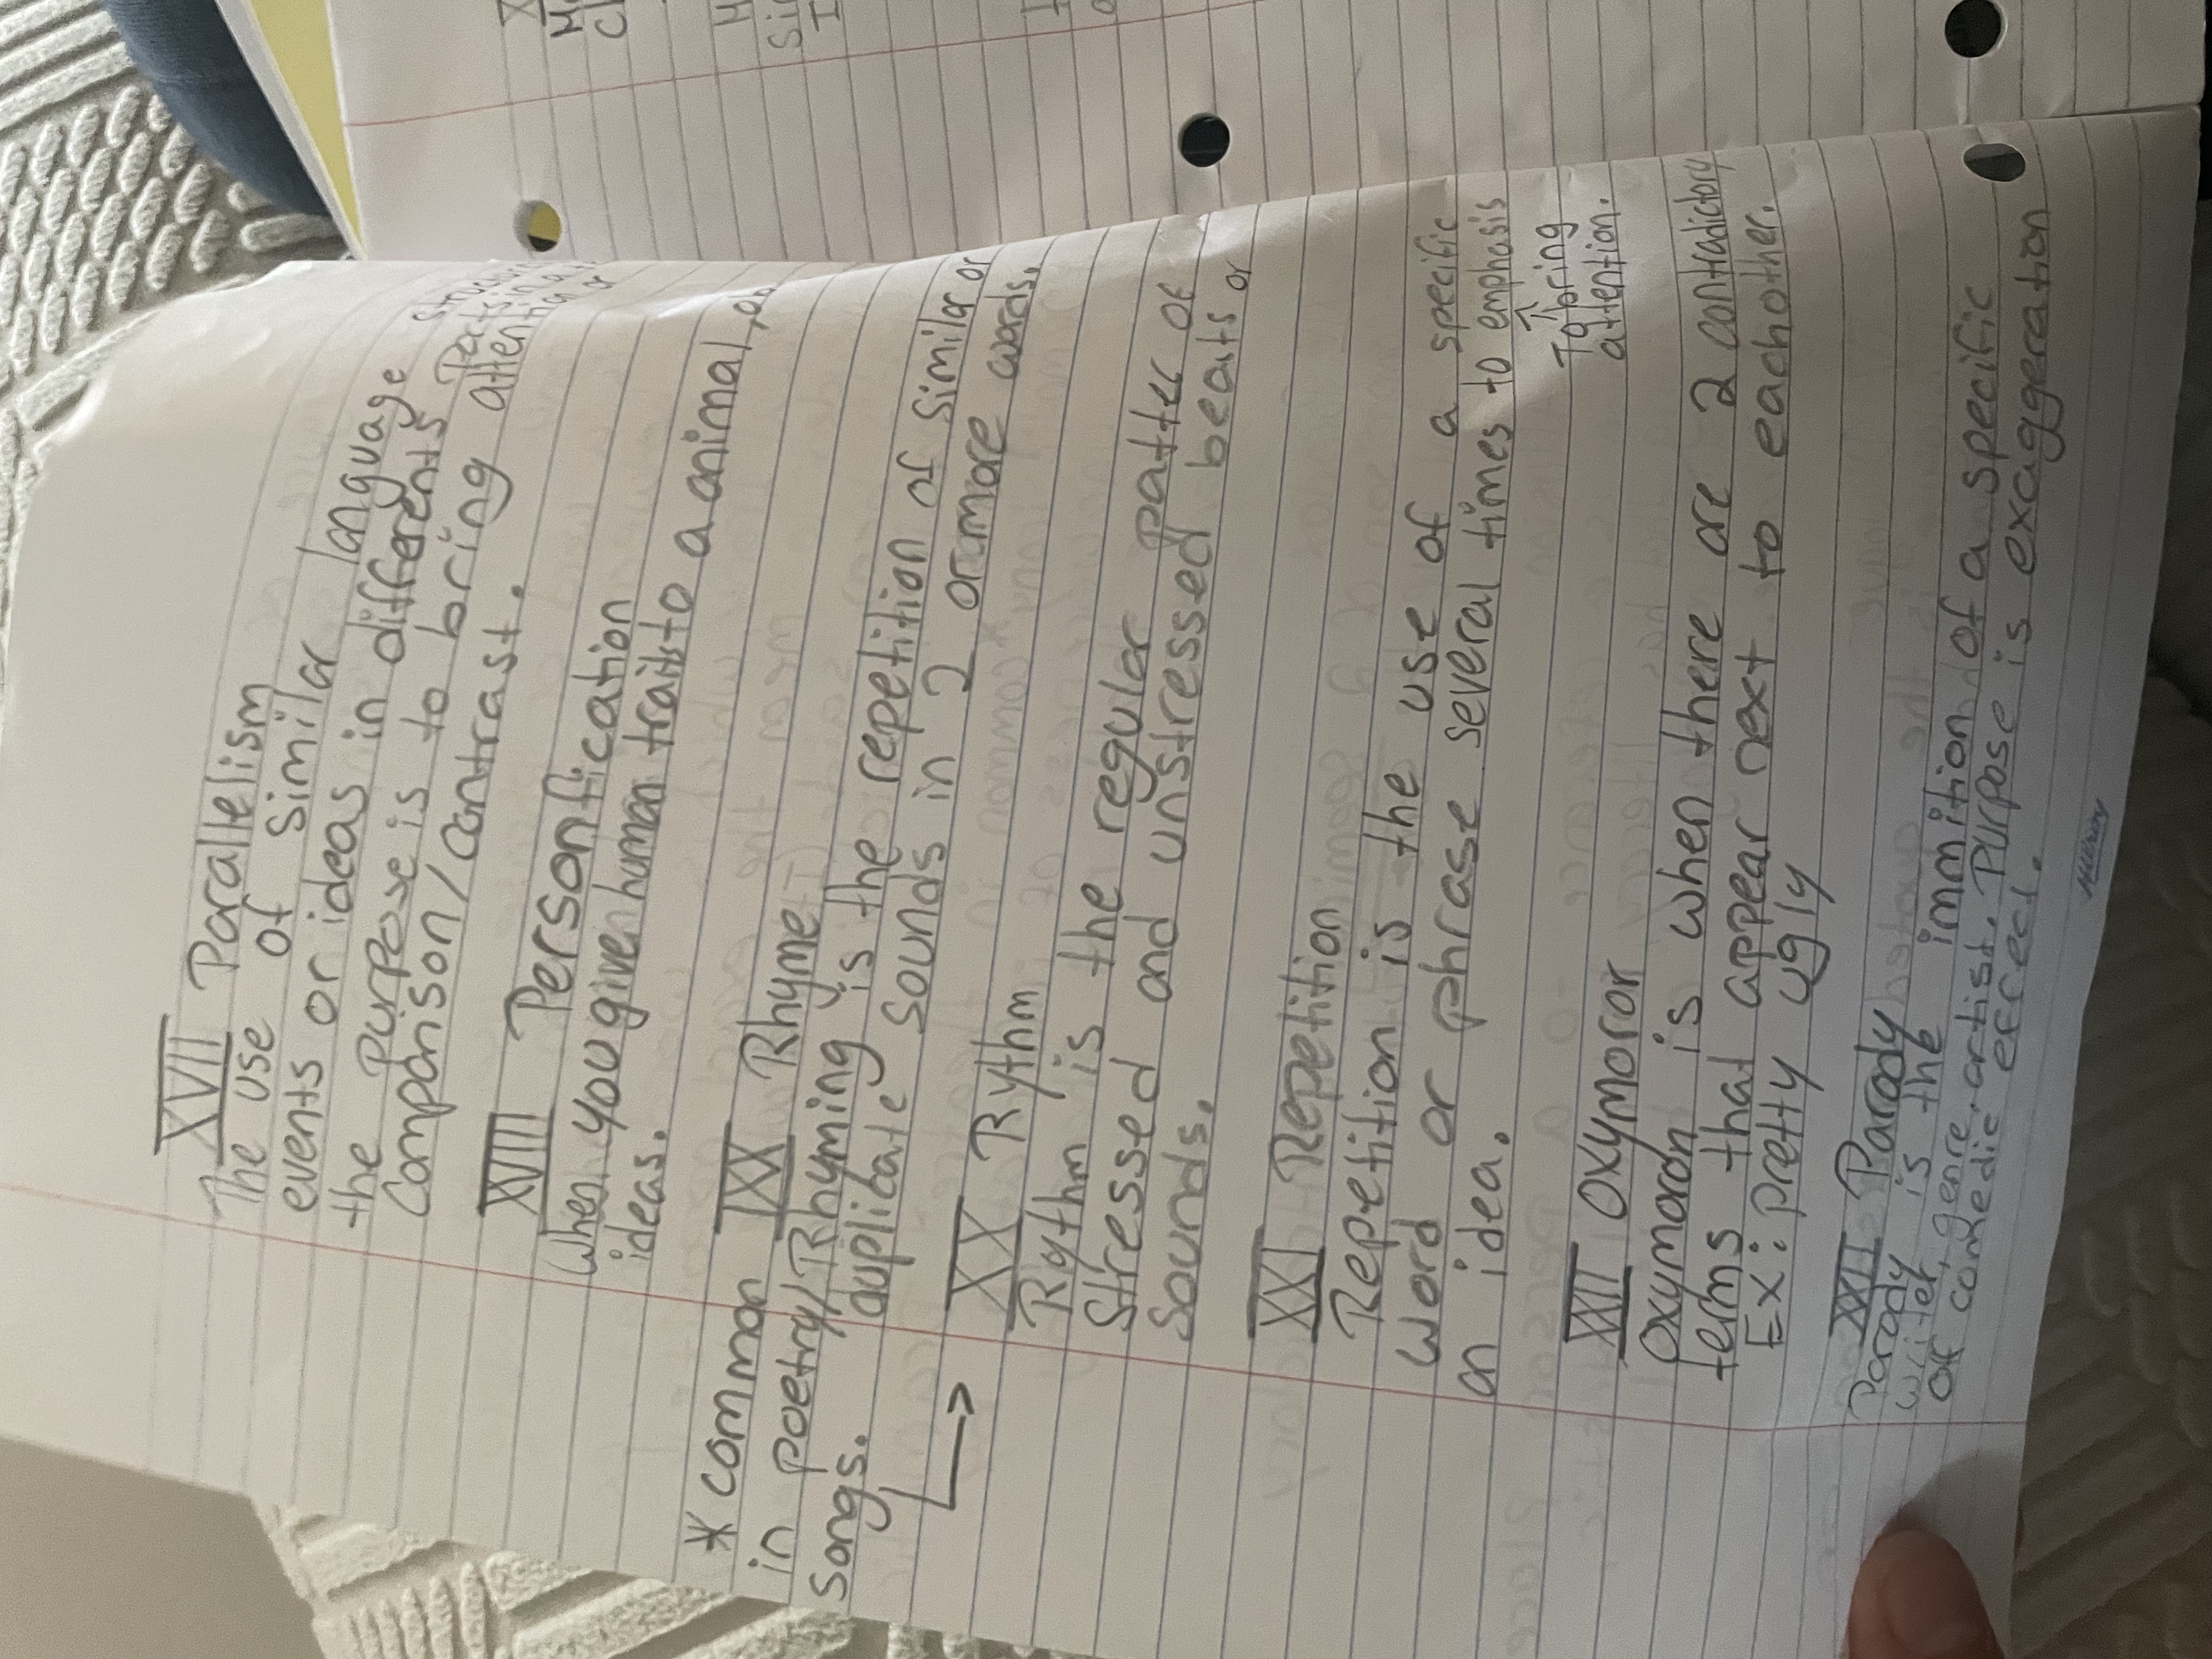 XVII Parallelism
The use of similar language structure
events or ideas in differents parts in a
the purpose is to bring attention
comparison/contrast.
XVIII Personification
When you give human traits to a animal, or
ideas.
* common
in poetry/
songs.
IXX Rhyme
Rhyming is the repetition of similar or
duplicate sounds in 2 or more words.
XX Rythm
Rythm is the regular patter of
stressed and unstressed beats or
sounds.
XXI Repetition
Repetition is the use of a specific
word or phrase several times to emphasis
an idea.
To bring
attention.
XXII Oxymoron
Oxymoron is when there are 2 contradictory
terms that appear next to eachother.
Ex: pretty ugly
XXII Parody
Parody is the immition of a specific
writer, genre, artist. Purpose is exaggeration
or comedic effect.